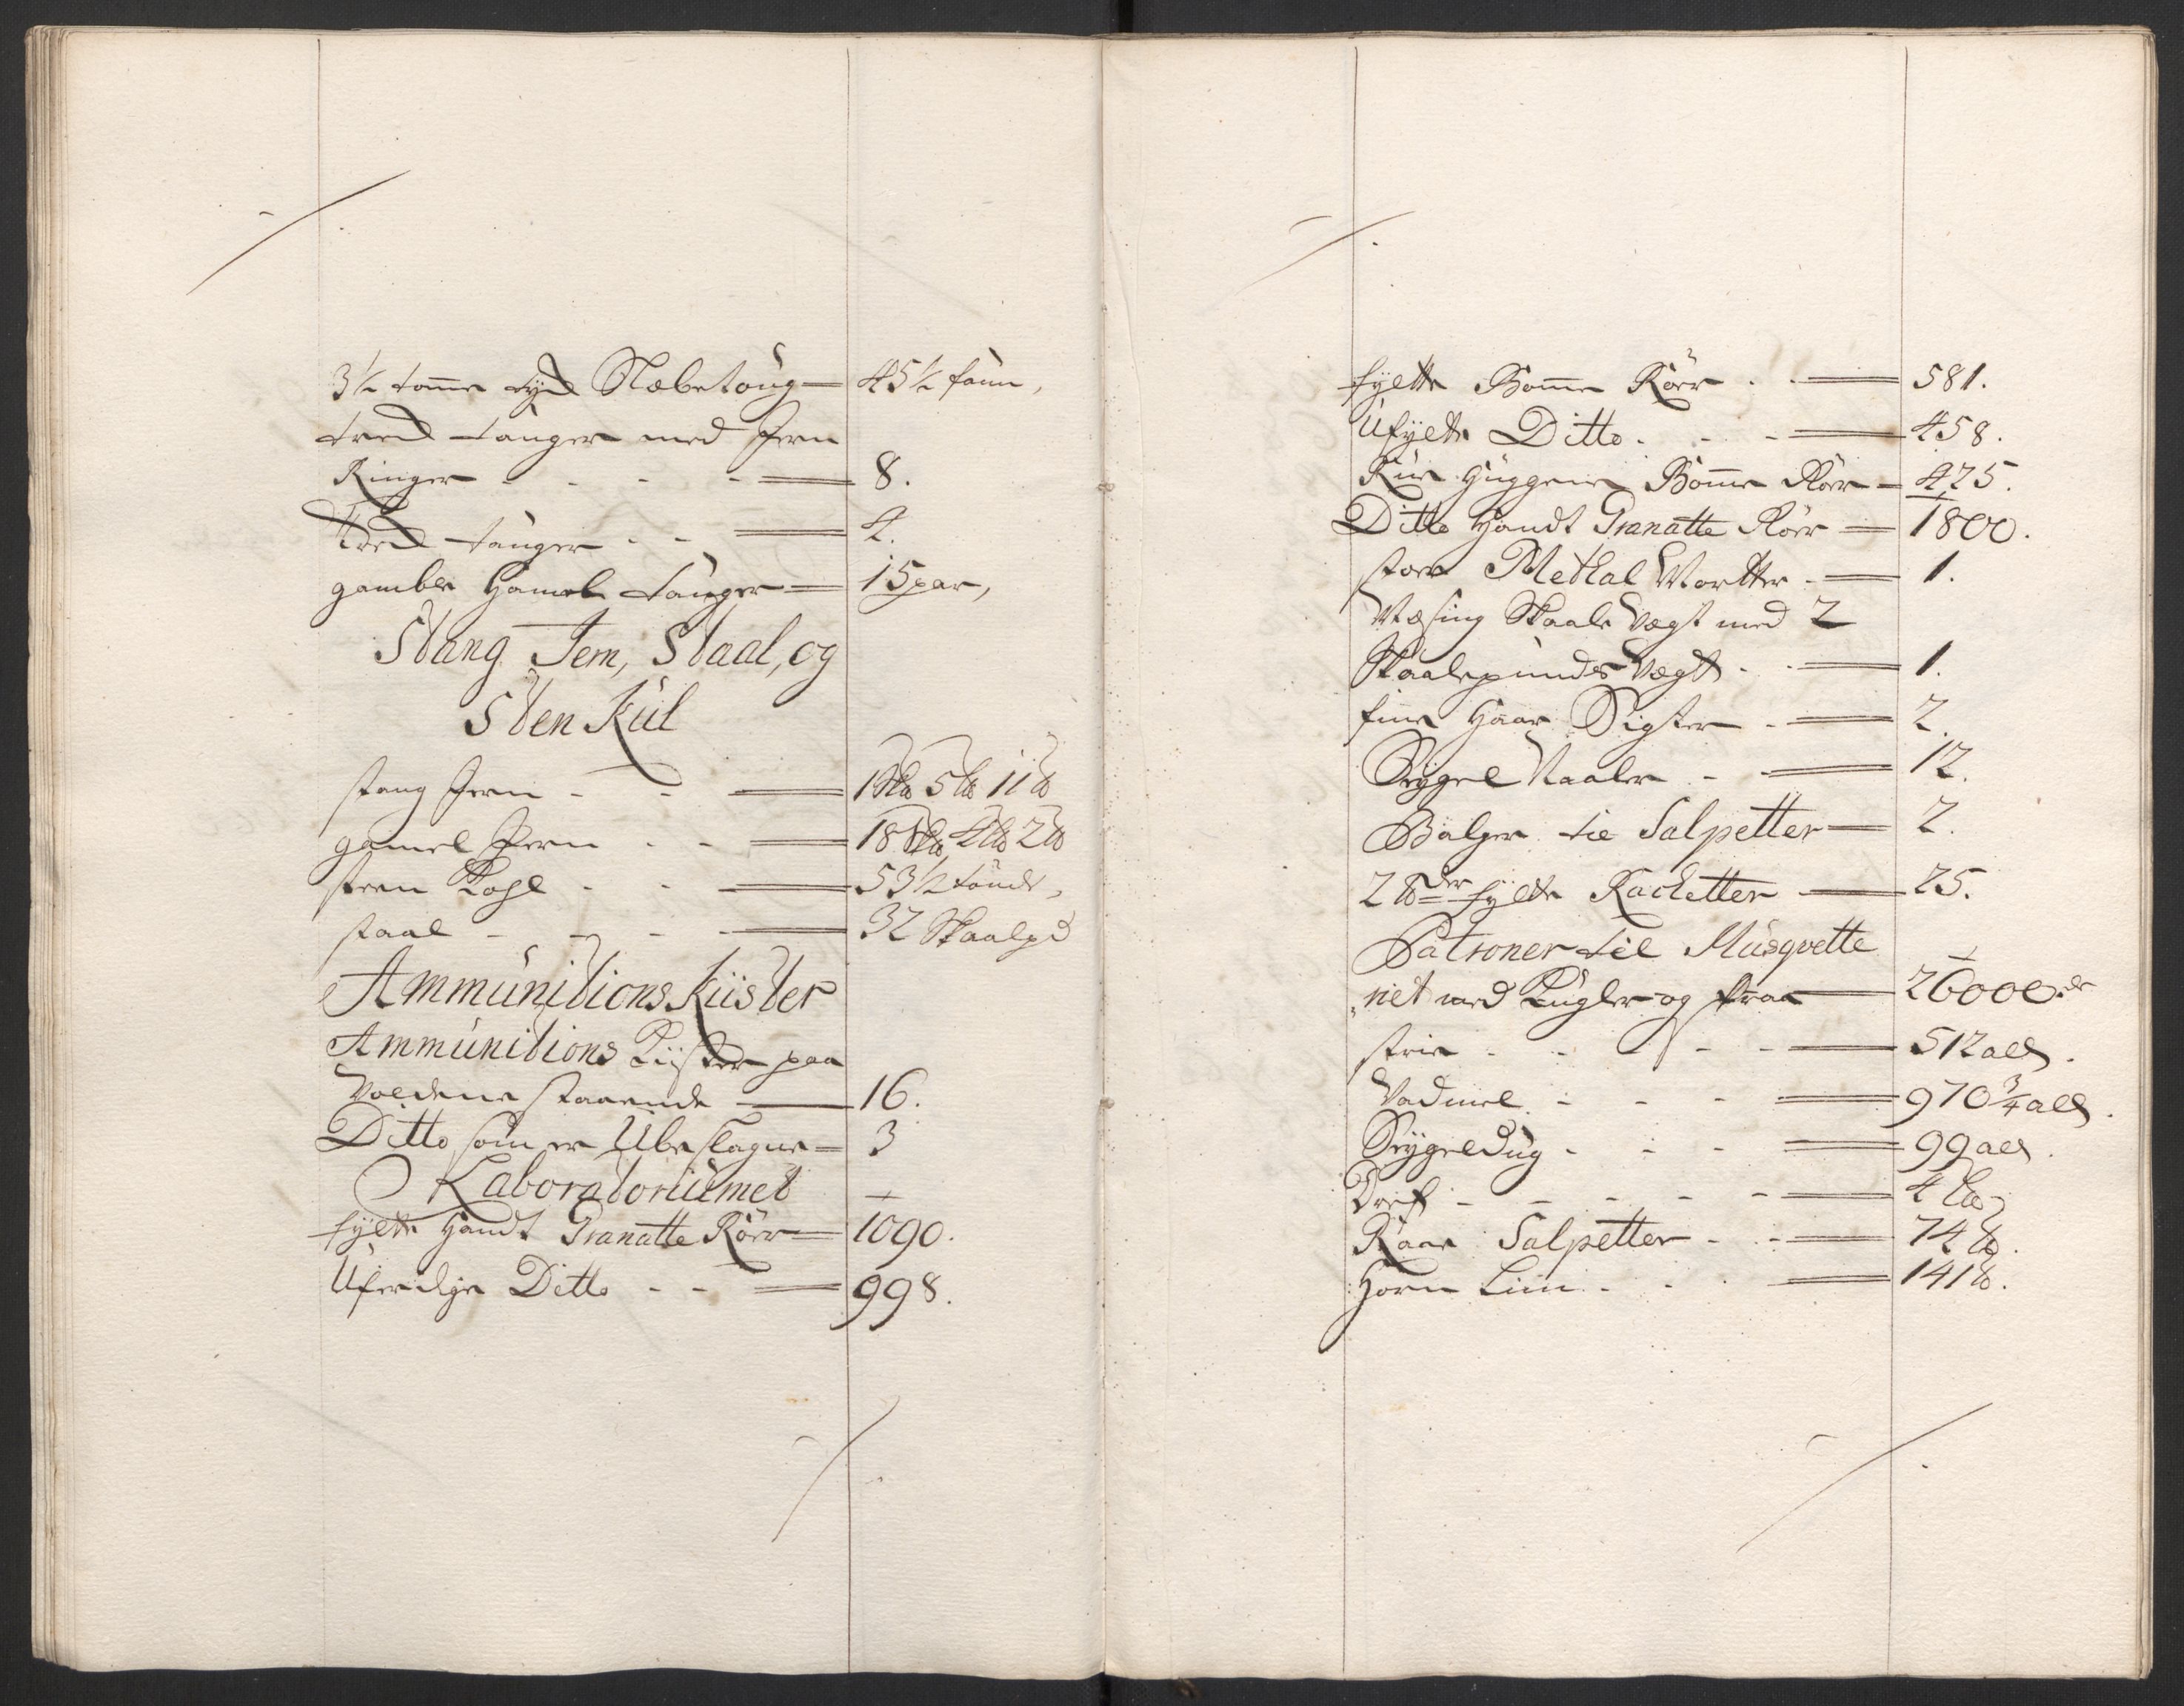 3½ tomme tyk Slæbetoug — 45½ faun,
træk tauger med Jern
Ringer - - - - 8.
Træk tauger - - 4.
gamble Hamel tauger — 15 par,
Stang Jern, Staal, og
Sten Kul
stang Jern - - 1 S℔ 5 L℔ 11 ℔
gamel Jern - - 18 S℔ 4 L℔ 2 ℔
steen Kohl - - 53½ tönde,
staal - - - - 32 Skaalpd
Ammunitions Kiister
Ammunitions Kiister paa
Voldene staaende — 16.
Ditto som er Ubeslagne — 3
Laboratoriumet
fylte Handt Granatte Rörr — 1090.
Uferdige Ditto - - 998.
fylte Bomme Rörr - - 581.
Ufylte Ditto - - - 458.
Rue Huggene Bomme Rörr — 425.
Ditto Handt Granatte Rörr — 1800.
stoer Methal Mortter - 1.
Mæsing Skaale Vægt med 2
Skaalepunds Vægt - - 1.
fiine Haar Sigter - 2.
Seygel Naaler - - 12.
Balger til Salpetter — 2.
2 ℔der fylte Rachetter — 25.
Patroner til Musqvette
„riet med Kugler og Kraa — 26000 de
strie - - - - - 512 all.
Vadmel - - - 970¾ all.
Seygeldug - - - 99 all.
Dref - - - - - 4 L℔
Raae Salpetter - - 74 ℔.
Horn Liim - - - 141 ℔.